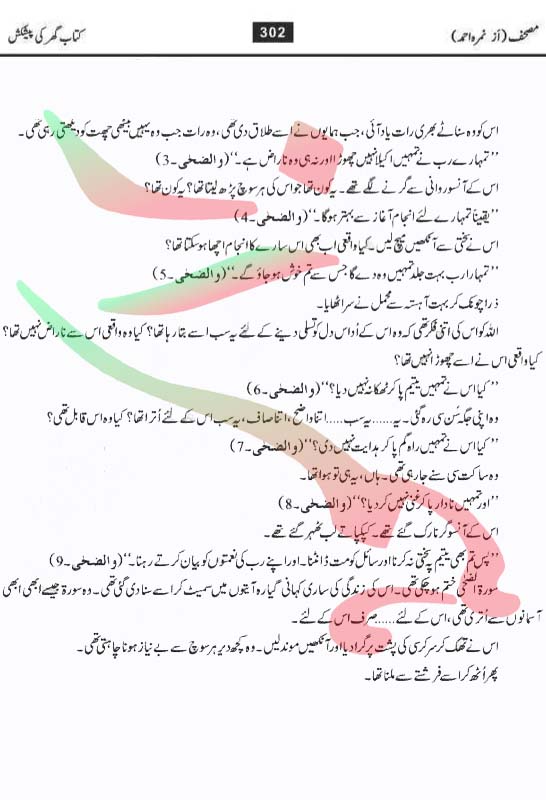 مصحف (از نمرہ احمد)
302
کتاب گھر کی پیشکش
اس کو وہ سناٹے بھری رات یاد آئی، جب ہمایوں نے اسے طلاق دی تھی، وہ رات جب وہ یہیں بیٹھی چھت کو دیکھتی رہی تھی۔
’’تمہارے رب نے تمہیں اکیلا نہیں چھوڑا اور نہ ہی وہ ناراض ہے۔‘‘ (والضحٰی۔3)
اس کے آنسو روانی سے گرنے لگے تھے۔ یہ کون تھا جو اس کی ہر سوچ پڑھ لیتا تھا؟ یہ کون تھا؟
’’یقیناً تمہارے لئے انجام آغاز سے بہتر ہوگا۔‘‘ (والضحٰی۔4)
اس نے سختی سے آنکھیں میچ لیں۔ کیا واقعی اب بھی اس سارے کا انجام اچھا ہو سکتا تھا؟
’’تمہارا رب بہت جلد تمہیں وہ دے گا جس سے تم خوش ہو جاؤ گے۔‘‘ (والضحٰی۔5)
ذرا چونک کر بہت آہستہ سے محمل نے سر اٹھایا۔
اللہ کو اس کی اتنی فکر تھی کہ وہ اس کے اُداس دل کو تسلی دینے کے لئے یہ سب اسے بتا رہا تھا؟ کیا وہ واقعی اس سے ناراض نہیں تھا؟
کیا واقعی اس نے اسے چھوڑا نہیں تھا؟
’’کیا اس نے تمہیں یتیم پا کر ٹھکانا نہیں دیا؟‘‘ (والضحٰی۔6)
وہ اپنی جگہ سُن سی رہ گئی۔ یہ......یہ سب.....اتنا واضح، اتنا صاف، یہ سب اس کے لئے اُترا تھا؟ کیا وہ اس قابل تھی؟
’’کیا اس نے تمہیں راہ گم پا کر ہدایت نہیں دی؟‘‘ (والضحٰی۔7)
وہ ساکت سی سنے جا رہی تھی۔ ہاں، یہ ہی تو ہوا تھا۔
’’اور تمہیں نادار پا کر غنی نہیں کر دیا؟‘‘ (والضحٰی۔8)
اس کے آنسو گرنا رک گئے تھے۔ کپکپاتے لب ٹھہر گئے تھے۔
’’پس تم بھی یتیم پہ سختی نہ کرنا اور سائل کو مت ڈانٹنا۔ اور اپنے رب کی نعمتوں کو بیان کرتے رہنا۔‘‘ (والضحٰی۔9)
سورۃ الضحٰی ختم ہو چکی تھی۔ اس کی زندگی کی ساری کہانی گیارہ آیتوں میں سمیٹ کر اسے سنا دی گئی تھی۔ وہ سورۃ جیسے ابھی ابھی
آسمانوں سے اُتری تھی، اس کے لئے......صرف اس کے لئے۔
اس نے تھک کر سر کرسی کی پشت پر گرا دیا اور آنکھیں موند لیں۔ وہ کچھ دیر ہر سوچ سے بے نیاز ہونا چاہتی تھی۔
پھر اُٹھ کر اسے فرشتے سے ملنا تھا۔